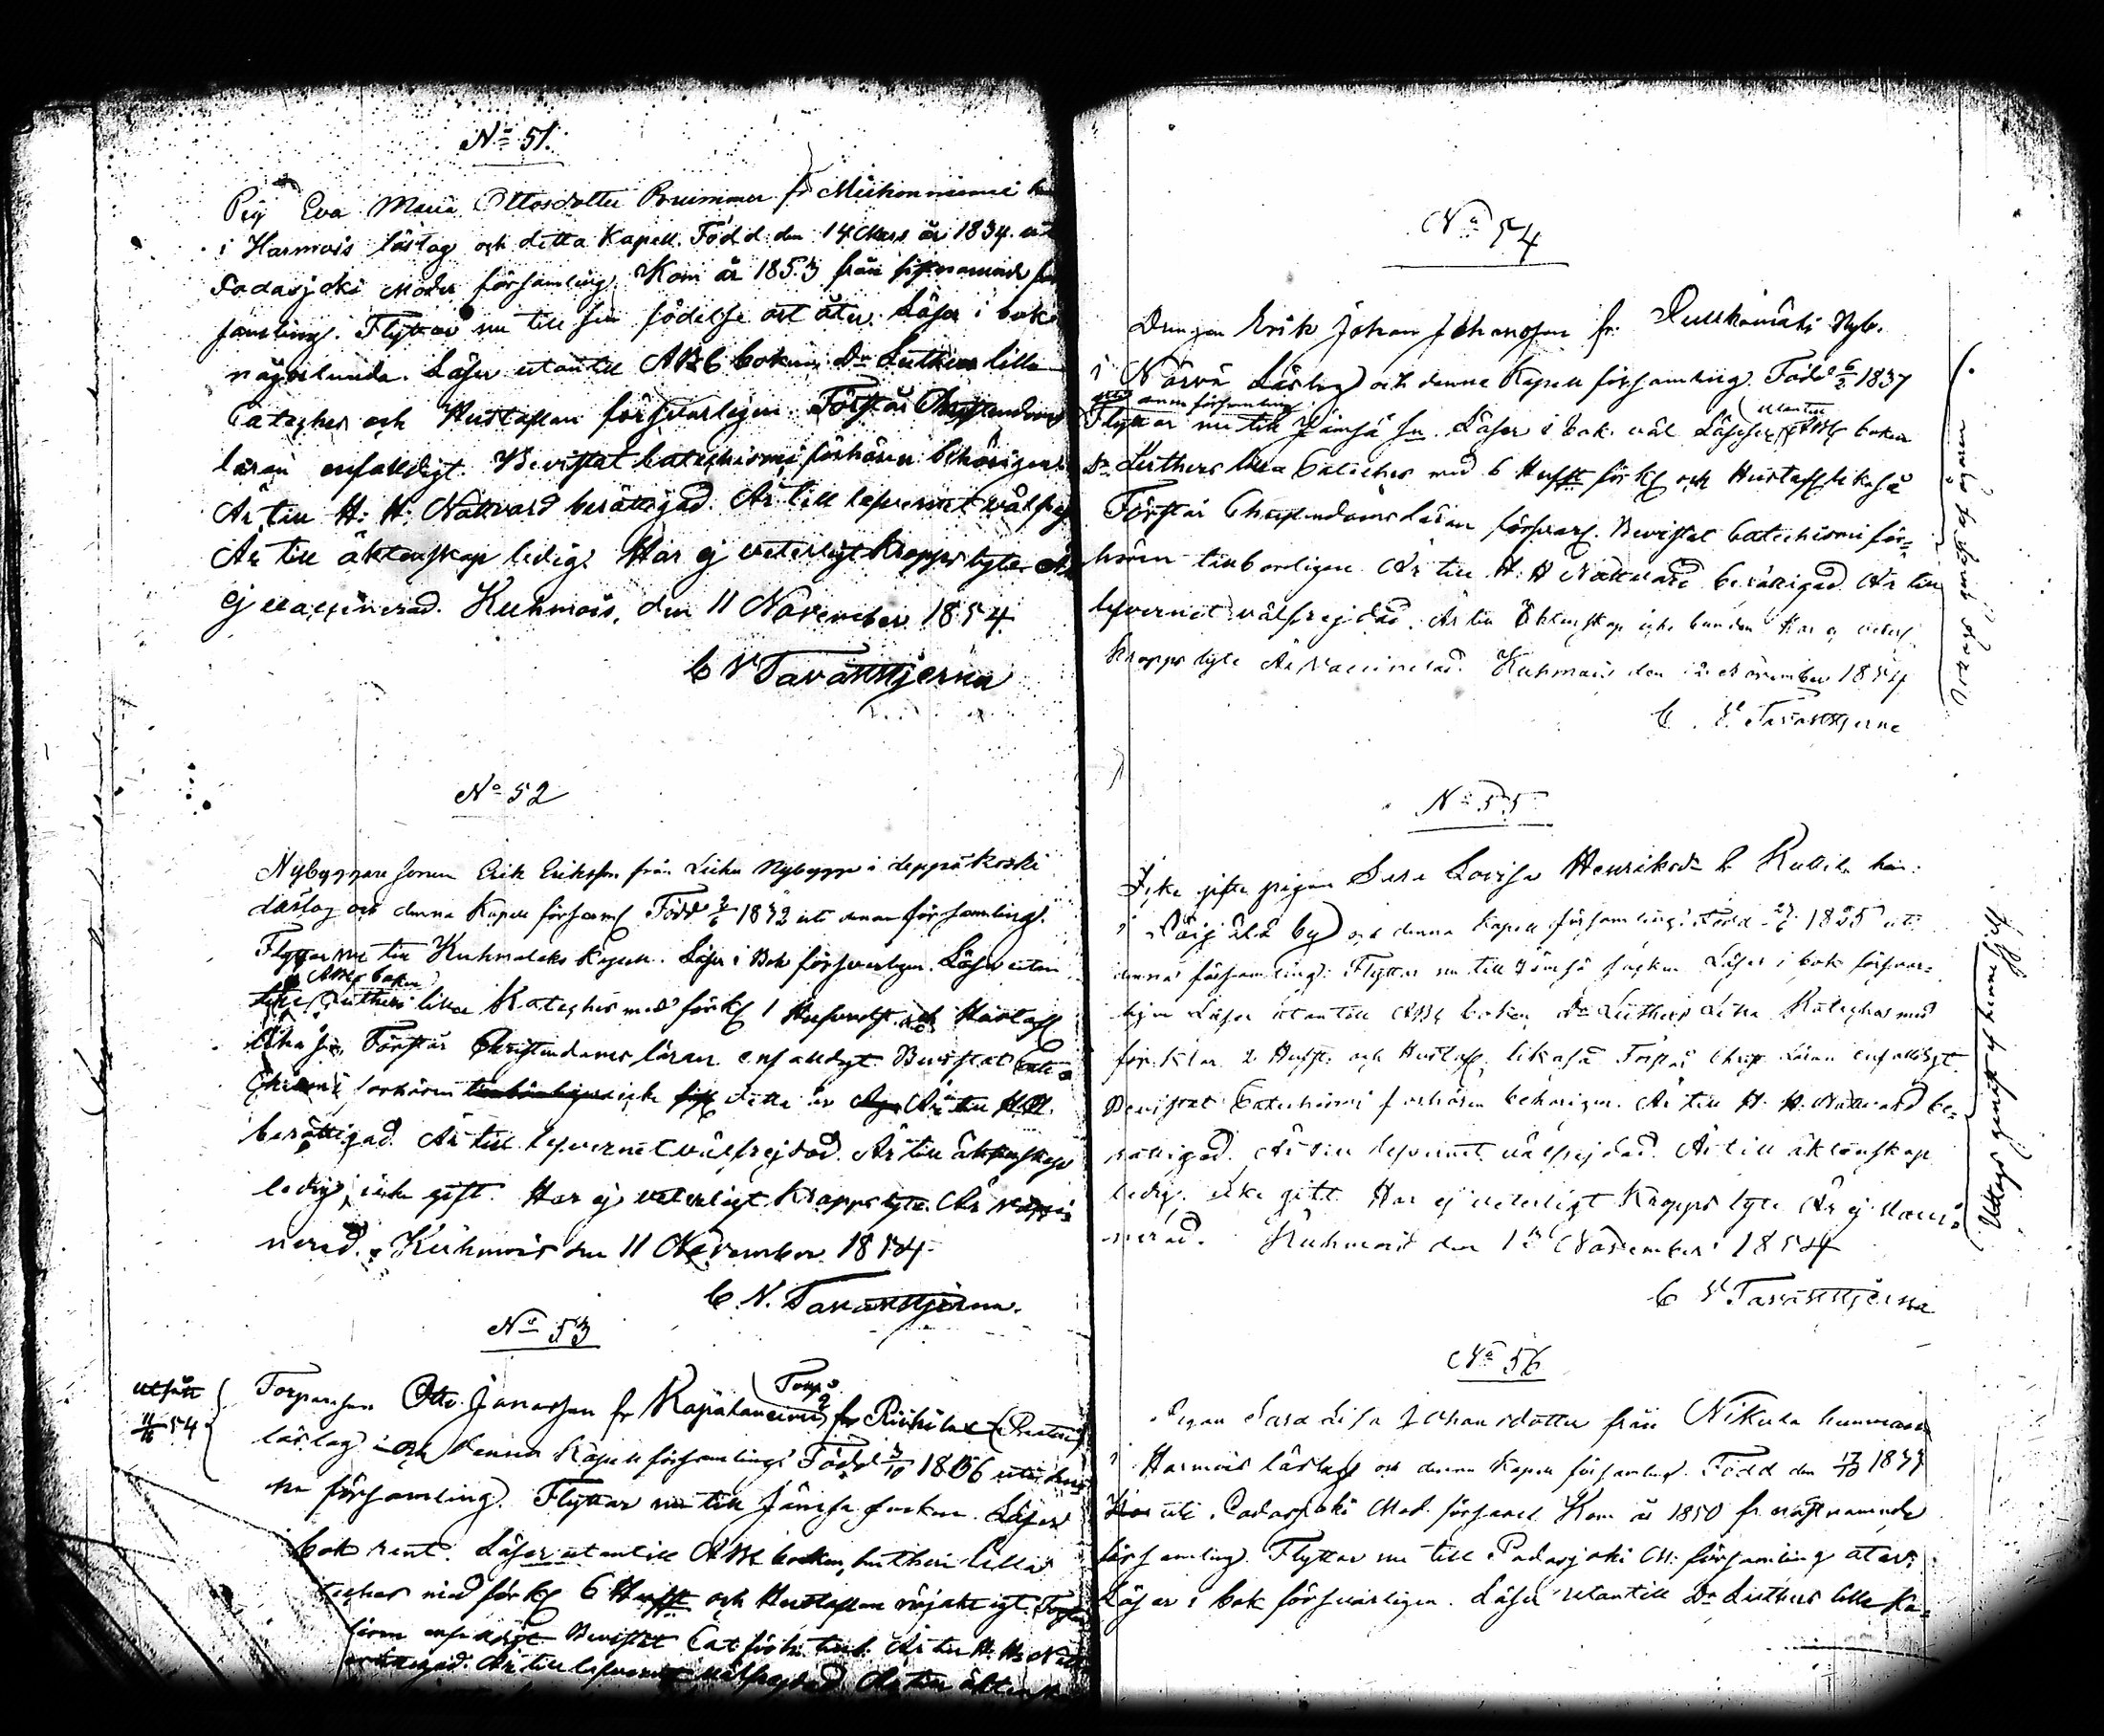 No 51.
Pig Eva Maria Ottosdotter Brummer fr
i Harmois låslag och detta Kapell. Född den 14 Mars år 1834. uti
Padasjoki Moder församling. Kom år 1853 från sistnämnde för
samling. Flyttar nu till sin födelse ort åter. Läser i bok
någorlunda. Läser utantill ABC boken Dr Luthers lilla
Cateches och Hustaflan försvarligen. Förstår Christendoms
läran enfaldigt. Bevistat Catechismi förhören behörigen.
Är till H. H. Nattvard berättigad. Är till lefvernet välfrej
Är till äktenskap ledig. Har ej veterligt Kropps lyte. Är
ej vaccinerad. Kuhmois, den 11 November 1854.
C N Tavaststjerna
No 52
Nybyggare sonen Erik Eriksson från Nybygge i Leppäkoski
låslag och denna Kapell församl Född 1832 uti denna församling.
Flyttar nu till Kuhmalaks Kapell. Läser i Bok försvarligen. Läser utan
ABC boken
Luthers lilla Kateches med förkl 1 Hufvudst. och Hustafl
lika så. Förstår Christendoms läran enfaldigt. Bevistat Cate
chismi förhören icke detta år Är till H.H.
berättigad. Är till lefvernet välfrejdad. Är till äktenskap
ledig, icke gift. Har ej veterligt Kropps lyte. Är vacci
nerad. Kuhmois den 11 November 1854.
C. N. Tavaststjerna.
No 53
11/11 54
Torp
Torpareson Otto Jonasson fr
låslag och denna Kapell församling. Född 3/10 1836 uti den
na församling. Flyttar nu till Jämsä socken. Läser
bok rent. Läser utantill ABC boken, Luthers lilla
teches med förkl 6 Hufst och Hustaflan
enfaldigt Bevistat Cat förh. Är till H. H. Natt
berättigad. Är till lefvernet välfrejdad Är till äktensk
No 54
Drengen Erik Johan Johansson fr. Nyb.
i Närvä Låslag och denna Kapell församling. Född 6/2 1837
uti denna församling
utantill
Flyttar nu till Jämsä sn. Läser i bok väl Läser ABC boken
Dr Luthers lilla Cateches med 6 Hufst förkl och Hustafl likaså
Förstår Christendoms Läran försvarl. Bevistat Catechismi för=
hören tillbörligen. Är till H. H Nattvard berättigad. Är till
lefvernet välfrejdad. Är till Äktenskap icke bunden Har ej veterl
Kropps lyte Är Vaccinerad. Kuhmois den November 1854
C N Tavaststjerna
No 55
Icke gifta pigan Sara Lovisa Henriksdr fr
i by och denna Kapell församling. Född 1835 uti
denna församling. Flyttar nu till Jämsä socken Läser i bok försvar=
ligen Läser utantill ABC boken, Dr Luthers Lilla Kateches med
förklar. 2 Hufst. och Hustafl, likaså Förstår Christ Läran enfaldigt.
Bevistat Catechismi förhören behörigen. Är till H. H. Nattvard be=
rättigad. Är till lefvernet välfrejdad. Är till äktenskap
ledig, icke gift Har ej veterligt Kropps lyte Är ej vacci=
nerad. Kuhmois den November 1854
C N Tavaststjerna
No 56
Pigan Sara Lisa Johansdotter från Nikula hemman
i Harmois låslag och denna Kapell församling. Född den 1833
uti Padasjoki Mod. församl Kom år 1850 fr nästnämnde
församling. Flyttar nu till Padasjoki M. församling åter.
Läser i bok försvarligen. Läser utantill Dr Luthers lilla Ka=